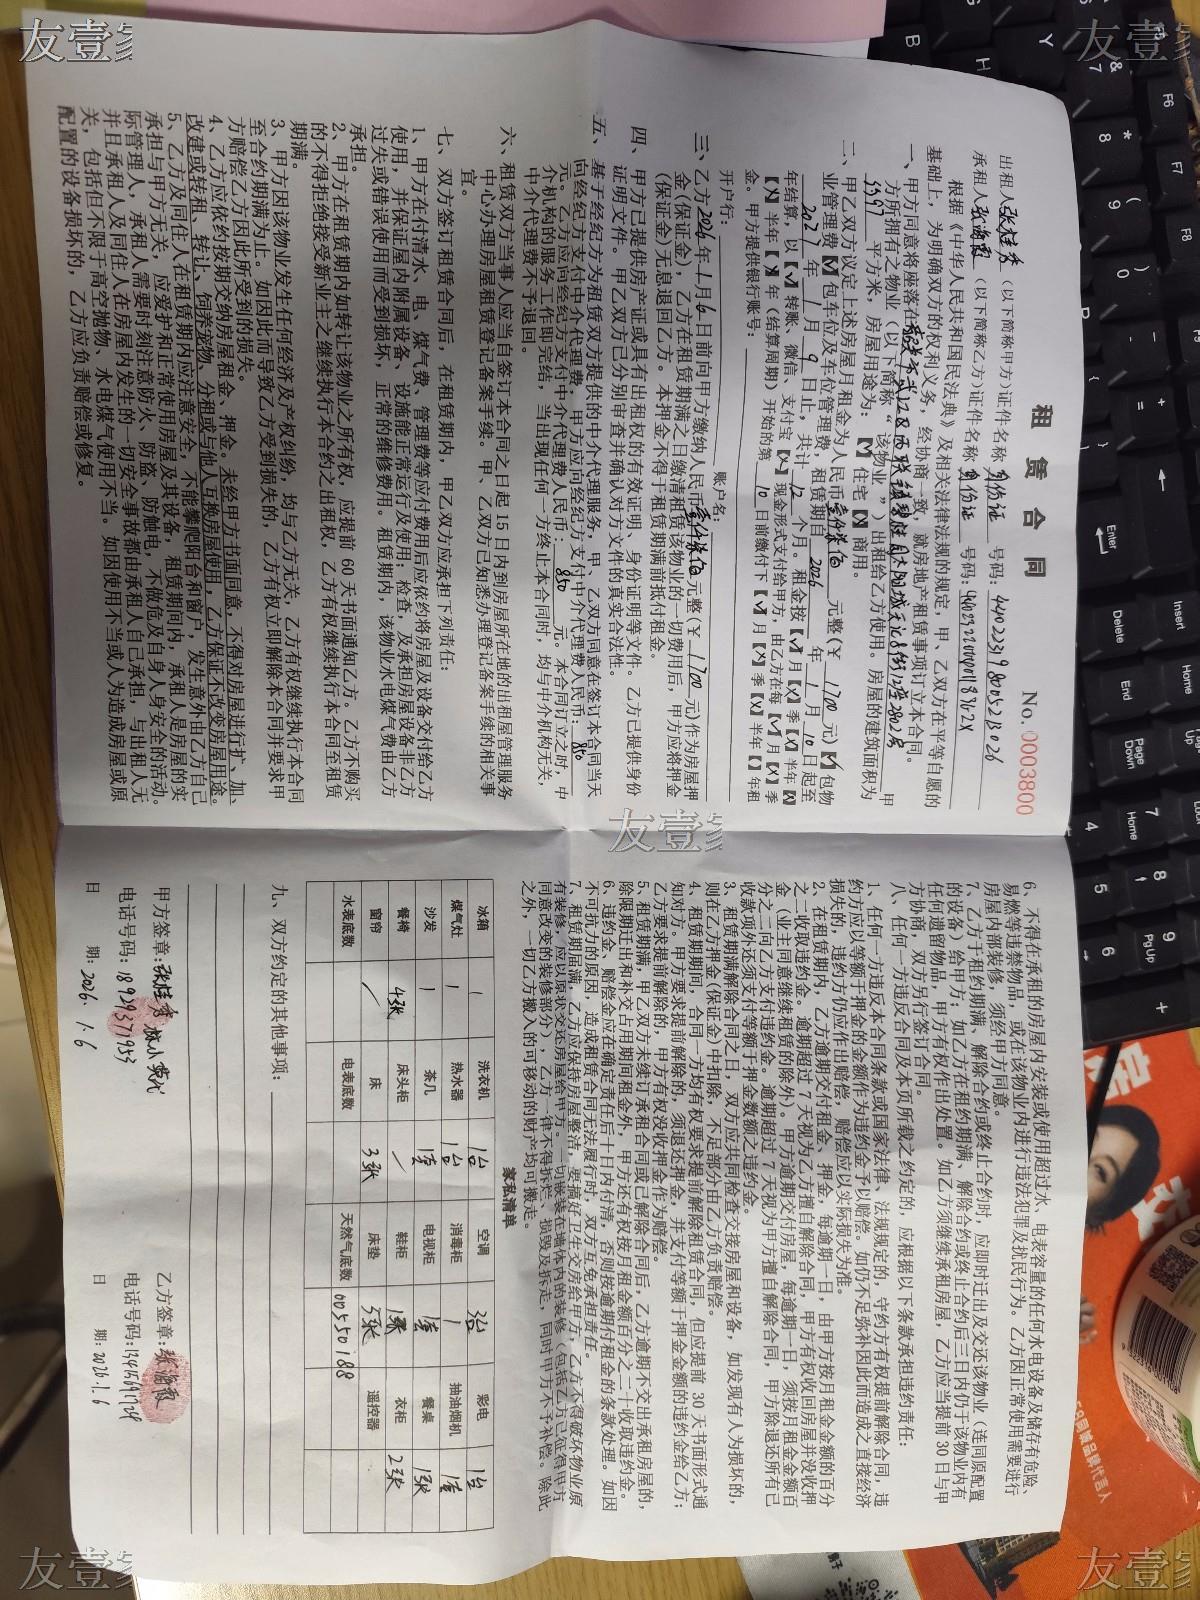 租 赁 合 同
No. 0003800
出租人 张桂秀 (以下简称甲方)证件名称 身份证 号码:
承租人 (以下简称乙方)证件名称 身份证 号码:
根据《中华人民共和国民法典》及相关法律法规的规定,甲、乙双方在平等自愿的
基础上,为明确双方的权利义务,经协商一致,就房地产租赁事项订立本合同。
一、甲方同意将座落在 甲
方所拥有之物业(以下简称“该物业”)出租给乙方使用。房屋的建筑面积为
平方米,房屋用途为:【√】住宅【X】商用。
二、甲乙双方议定上述房屋月租金为人民币 壹仟柒佰 元整(¥ 1700 元)【√】包物
业管理费【√】包车位及车位管理费,租赁期自 2026 年 1 月 10 日起至
2027 年 1 月 9 日止,共计 12 个月。租金按【√】月【X】季【X】半年【X】
年结算,以【√】转账、微信、支付宝【X】现金形式支付给甲方,由乙方在每【√】月【X】季
【X】半年【X】年(结算周期)开始的第 10 日前缴付下【√】月【X】季【X】半年【】年租
金。甲方提供银行账号:
开户行: 账户名:
三、乙方 2026 年 1 月 6 日前向甲方缴纳人民币 壹仟柒佰 元整(¥ 1700 元)作为房屋押
金(保证金),乙方在租赁期满之日缴清租赁该物业的一切费用后,甲方应将押金
(保证金)无息退回乙方。本押金不得于租赁期满前抵付租金。
四、甲方已提供房产证或具有出租权的有效证明、身份证明等文件。乙方已提供身份
证明文件。甲乙双方已分别审查并确认对方文件的真实合法性。
五、基于经纪方为租赁双方提供的中介代理服务,甲、乙双方同意在签订本合同当天
向经纪方支付中介代理费,甲方应向经纪方支付中介代理费人民币: 850
元。乙方应向经纪方支付中介代理费人民币: 850 元。本合同订立之时,中
介机构的服务工作即完结,当出现任何一方终止本合同时,均与中介机构无关,
中介代理费不予退回。
六、租赁双方当事人应当自签订本合同之日起 15 日内到房屋所在地的出租屋管理服务
中心办理房屋租赁登记备案手续。甲、乙双方已知悉办理登记备案手续的相关事
宜。
七、双方签订租赁合同后,在租赁期内,甲乙双方应承担下列责任:
1、甲方在付清水、电、煤气费、管理费等应付费用后应依约将房屋及设备交付给乙方
使用,并保证屋内附属设备、设施能正常运行及使用;检查,及承担房屋设备非乙方
过失或错误使用而受到损坏,正常的维修费用。租赁期内,该物业水电煤气费由乙方
承担。
2、甲方在租赁期内如转让该物业之所有权,应提前 60 天书面通知乙方。乙方不购买
的不得拒绝接受新业主之继续执行本合约之出租权,乙方有权继续执行本合同至租赁
期满。
3、甲方因该物业发生任何经济及产权纠纷,均与乙方无关,乙方有权继续执行本合同
至合约期满为止。如因此而导致乙方受到损失的,乙方有权立即解除本合同并要求甲
方赔偿乙方因此所受到的损失。
4、乙方应依约按期交纳房屋租金、押金。未经甲方书面同意,不得对房屋进行扩、加、
改建或转租、转让、饲养宠物、分租或与他人互换房屋使用,乙方保证不改变房屋用途。
5、乙方及同住人在租赁期内应注意安全,不能攀爬阳台和窗户,发生意外由乙方自己
承担与甲方无关,应爱护和正常使用房屋及其设备,租赁期间内,承租人是房屋的实
际管理人,承租人需要时刻注意防火、防盗、防触电,不做危及自身人身安全的活动。
并且承租人及同住人在房屋内发生的一切安全事故都由承租人自己承担,与出租人无
关,包括但不限于高空抛物、水电煤气使用不当。如因使用不当或人为造成房屋或原
配置的设备损坏的,乙方应负责赔偿或修复。
6、不得在承租的房屋内安装或使用超过水、电表容量的任何水电设备及储存有危险、
易燃等违禁物品,或在该物业内进行违法犯罪及扰民行为。乙方因正常使用需要进行
房屋内部装修,须经甲方同意。
7、乙方于租约期满、解除合约或终止合约时,应即时迁出及交还该物业(连同原配置
的设备)给甲方;如乙方在租约期满、解除合约或终止合约后三日内仍于该物业内有
任何遗留物品,甲方有权作出处置。如乙方须继续承租房屋,乙方应当提前 30 日与甲
方协商,双方另行签订合同。
八、任何一方违反合同及本页所载之约定的,应根据以下条款承担违约责任:
1、任何一方违反本合同条款或国家法律、法规规定的,守约方有权提前解除合同,违
约方应以等额于押金的金额作为违约金予以赔偿。如仍不足弥补因此而造成之直接经济
损失的,违约方仍应作出赔偿,赔偿应以实际损失为准。
2、在租赁期内,乙方逾期交付租金、押金,每逾期一日,由甲方按月租金金额的百分
之二收取违约金。逾期超过 7 天视为乙方擅自解除合同,甲方有权收回房屋并没收押
金(业主同意继续租赁的除外)。甲方逾期交付房屋,每逾期一日,须按月租金金额百
分之二向乙方支付违约金。逾期超过 7 天视为甲方擅自解除合同,甲方除退还所有已
收款项外还须支付等额于押金数额之违约金。
3、租赁期满解除合同之日,双方应共同检查交接房屋和设备,如发现有人为损坏的,
则在乙方押金(保证金)中扣除,不足部分由乙方负责赔偿。
4、租赁期期间,合同一方均有权要求提前解除租赁合同,但应提前 30 天书面形式通
知对方。甲方要求提前解除的,须退还押金,并支付等额于押金金额的违约金给乙方;
乙方要求提前解除的,甲方有权没收押金作为赔偿。
5、租赁期满,甲乙双方未续订承租合同或已解除合同后,乙方逾期不交出承租房屋的,
除限期迁出和补交占用期间租金外,甲方还有权按月租金额百分之二十收取违约金。
6、违约金、赔偿金应在确定责任后十日内付清,否则按逾期付租金的条款处理。如因
不可抗力的原因,造成租赁合同无法履行时,双方互免承担责任。
7、租赁期届满,乙方应保持房屋整洁,要搞好卫生交房给甲方,乙方不得破坏物业原
有装修,应以原状交还房屋给甲方。一切嵌装在墙体内的装修(包括乙方已征得甲方
同意改变的装修部分),乙方一律不得拆烂、损毁及拆走,同时甲方不予补偿。除此
之外,一切乙方搬入的可移动的财产均可搬走。
家私清单
冰箱 1 洗衣机 1台 空调 3台 彩电 1台
煤气灶 1 热水器 1台 消毒柜 1 抽油烟机 1台
沙发 1 茶几 1套 电视柜 1套 餐桌 1张
餐椅 4张 床头柜 / 鞋柜 1张 衣柜 2张
窗帘 / 床 3张 床垫 3张 遥控器
水表底数 电表底数 天然气底数 00550188
九、双方约定的其他事项:
甲方签章: 张桂秀
电话号码: 18929371953
日 期: 2026.1.6
乙方签章:
电话号码:
日 期: 2026.1.6
友壹家
友壹家
友壹家
友壹家
友壹家
58同城品牌代言人